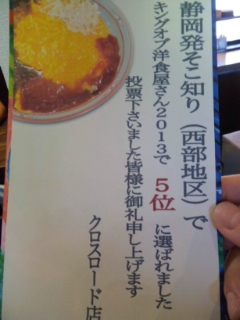 静岡発そこ知り（西部地区）で
キングオブ洋食屋さん2013で 5位 に選ばれました
投票下さいました皆様に御礼申し上げます
クロスロード店